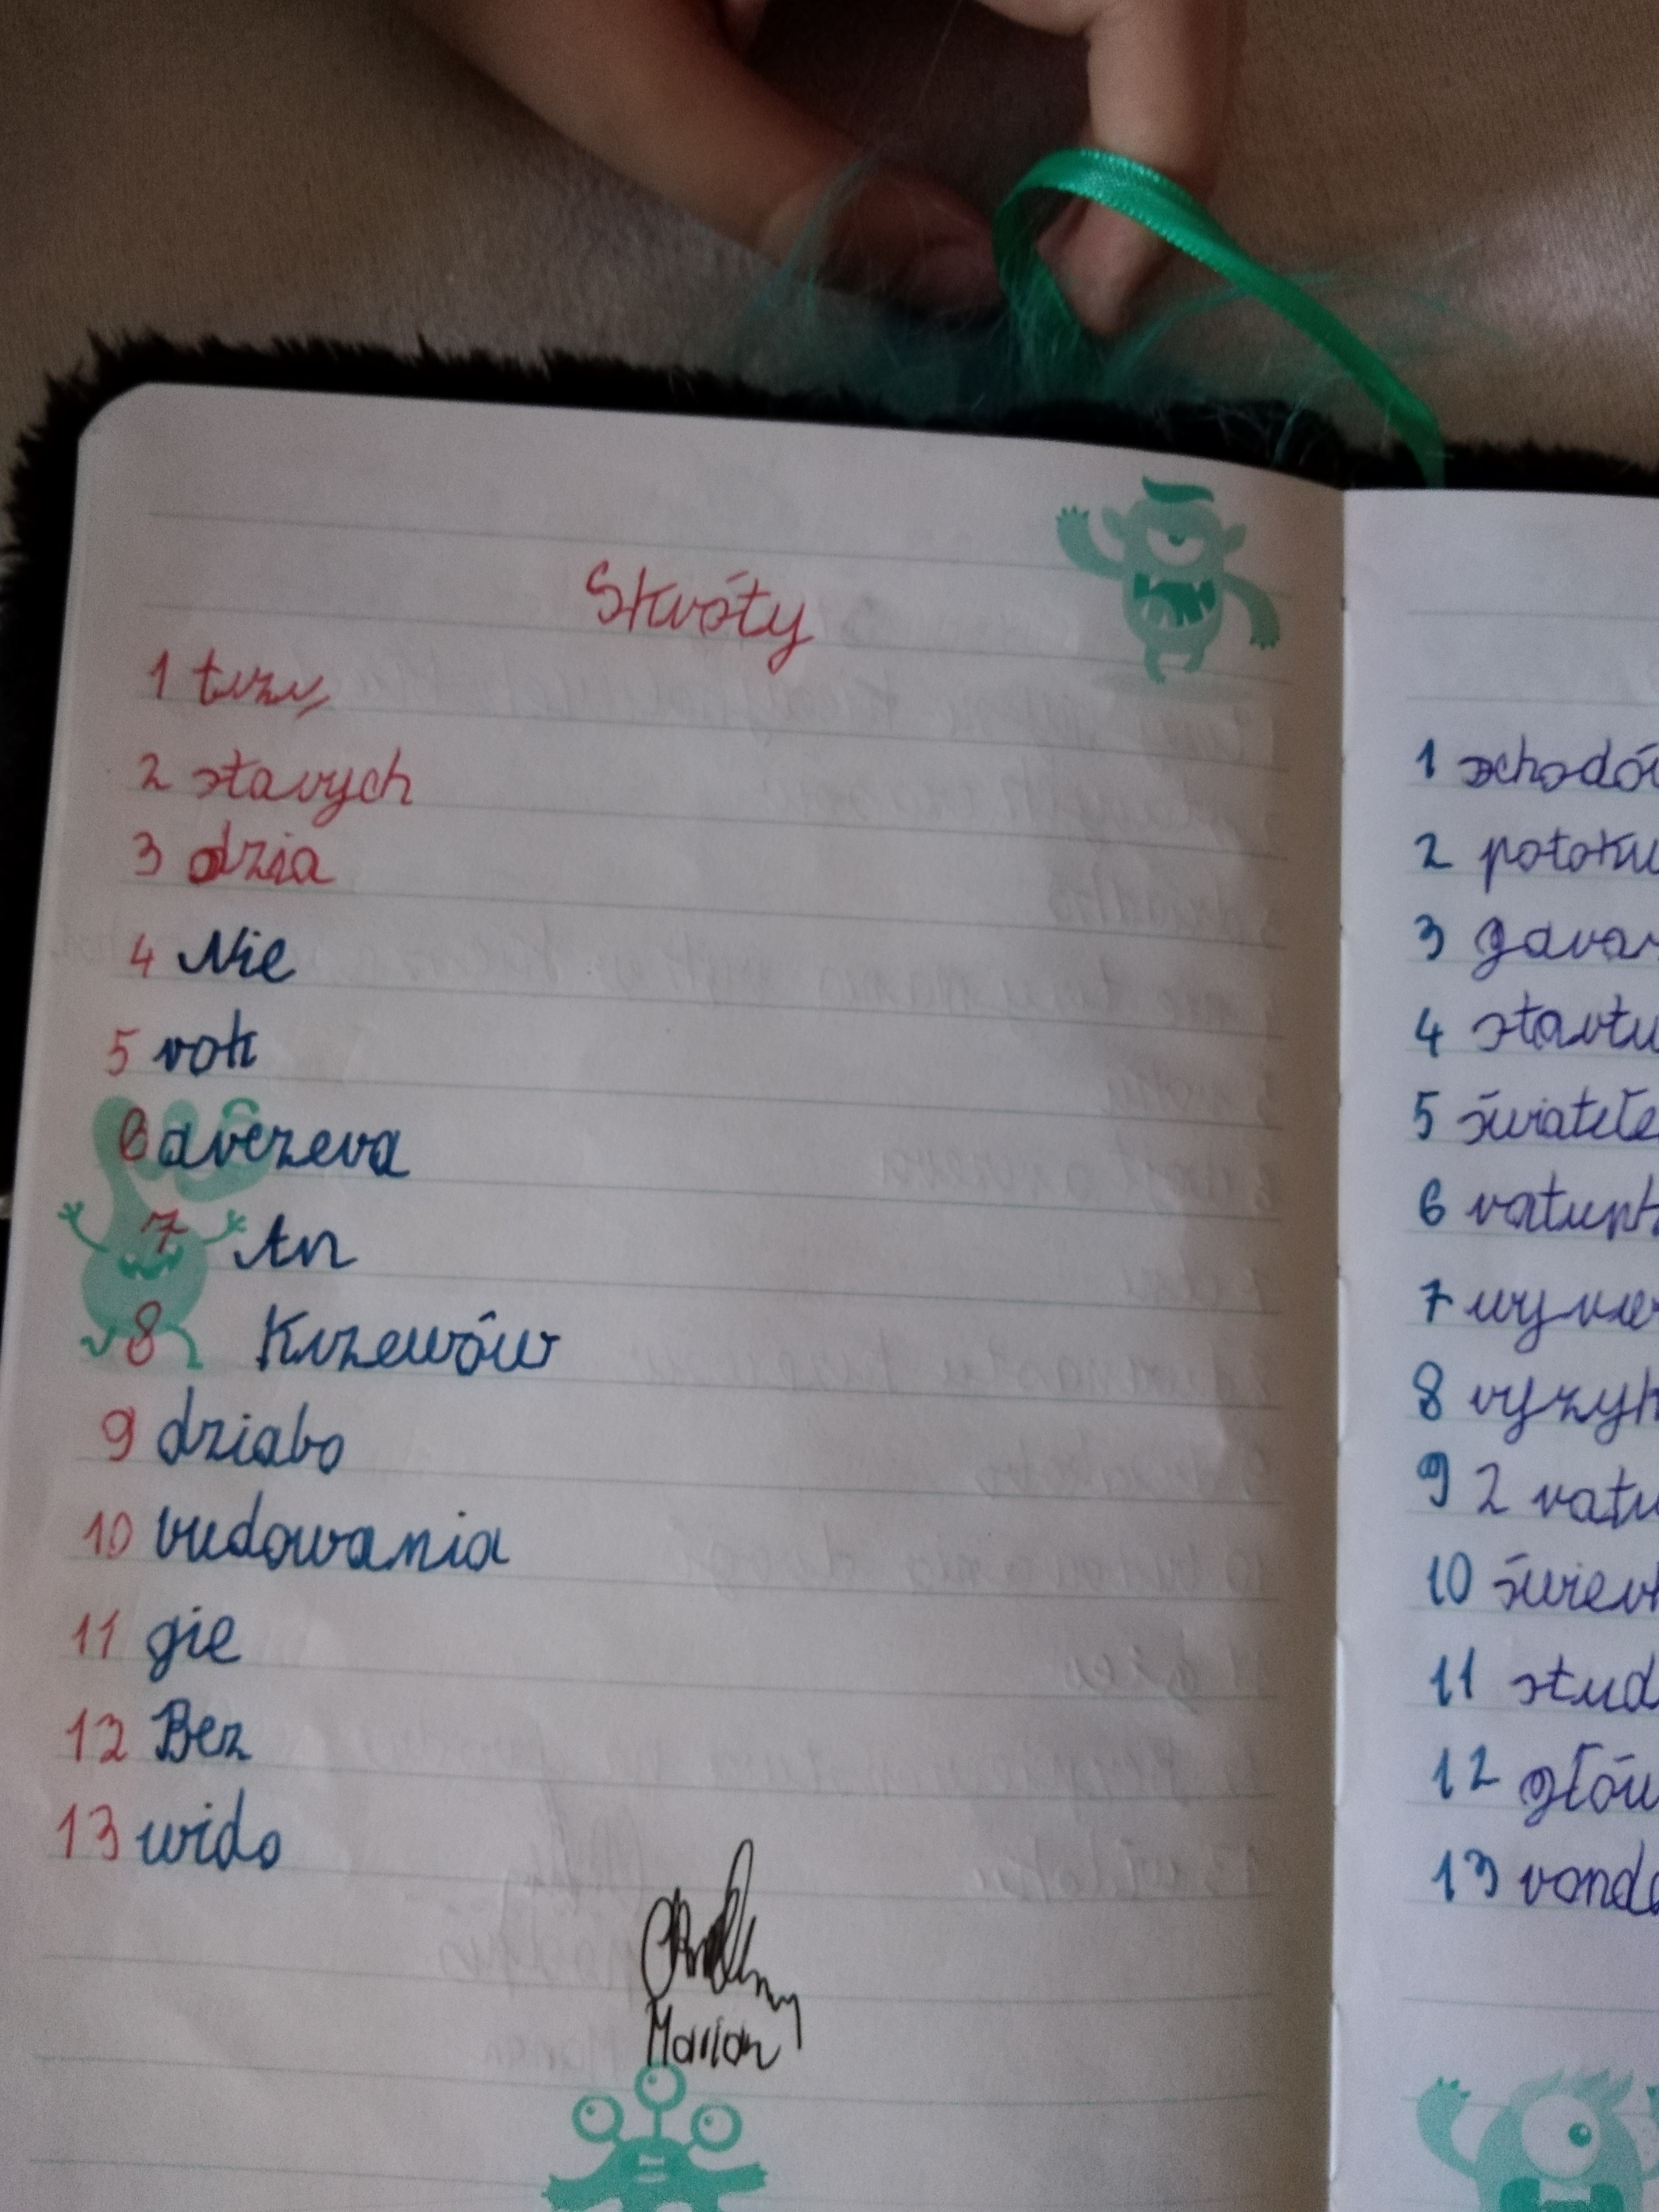 Skróty
1 trzy
2 starych
3 dzia
4 Nie
5 rok
6 arezera
7 An
8 Krzewów
9 dziabo
10 budowania
11 gie
12 Bez
13 wido
Marian
1 schodó
2 potoku
3 garar
4 startu
5 światełe
6 ratunk
7 wy rue
8 ryzyk
9 2 ratu
10 świerk
11 stud
12 głów
13 rond